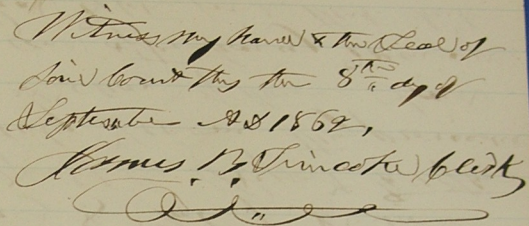 Witness my hand & the Seal of
Said Court this the 8th day of
September AD 1862,
James B. Clerk